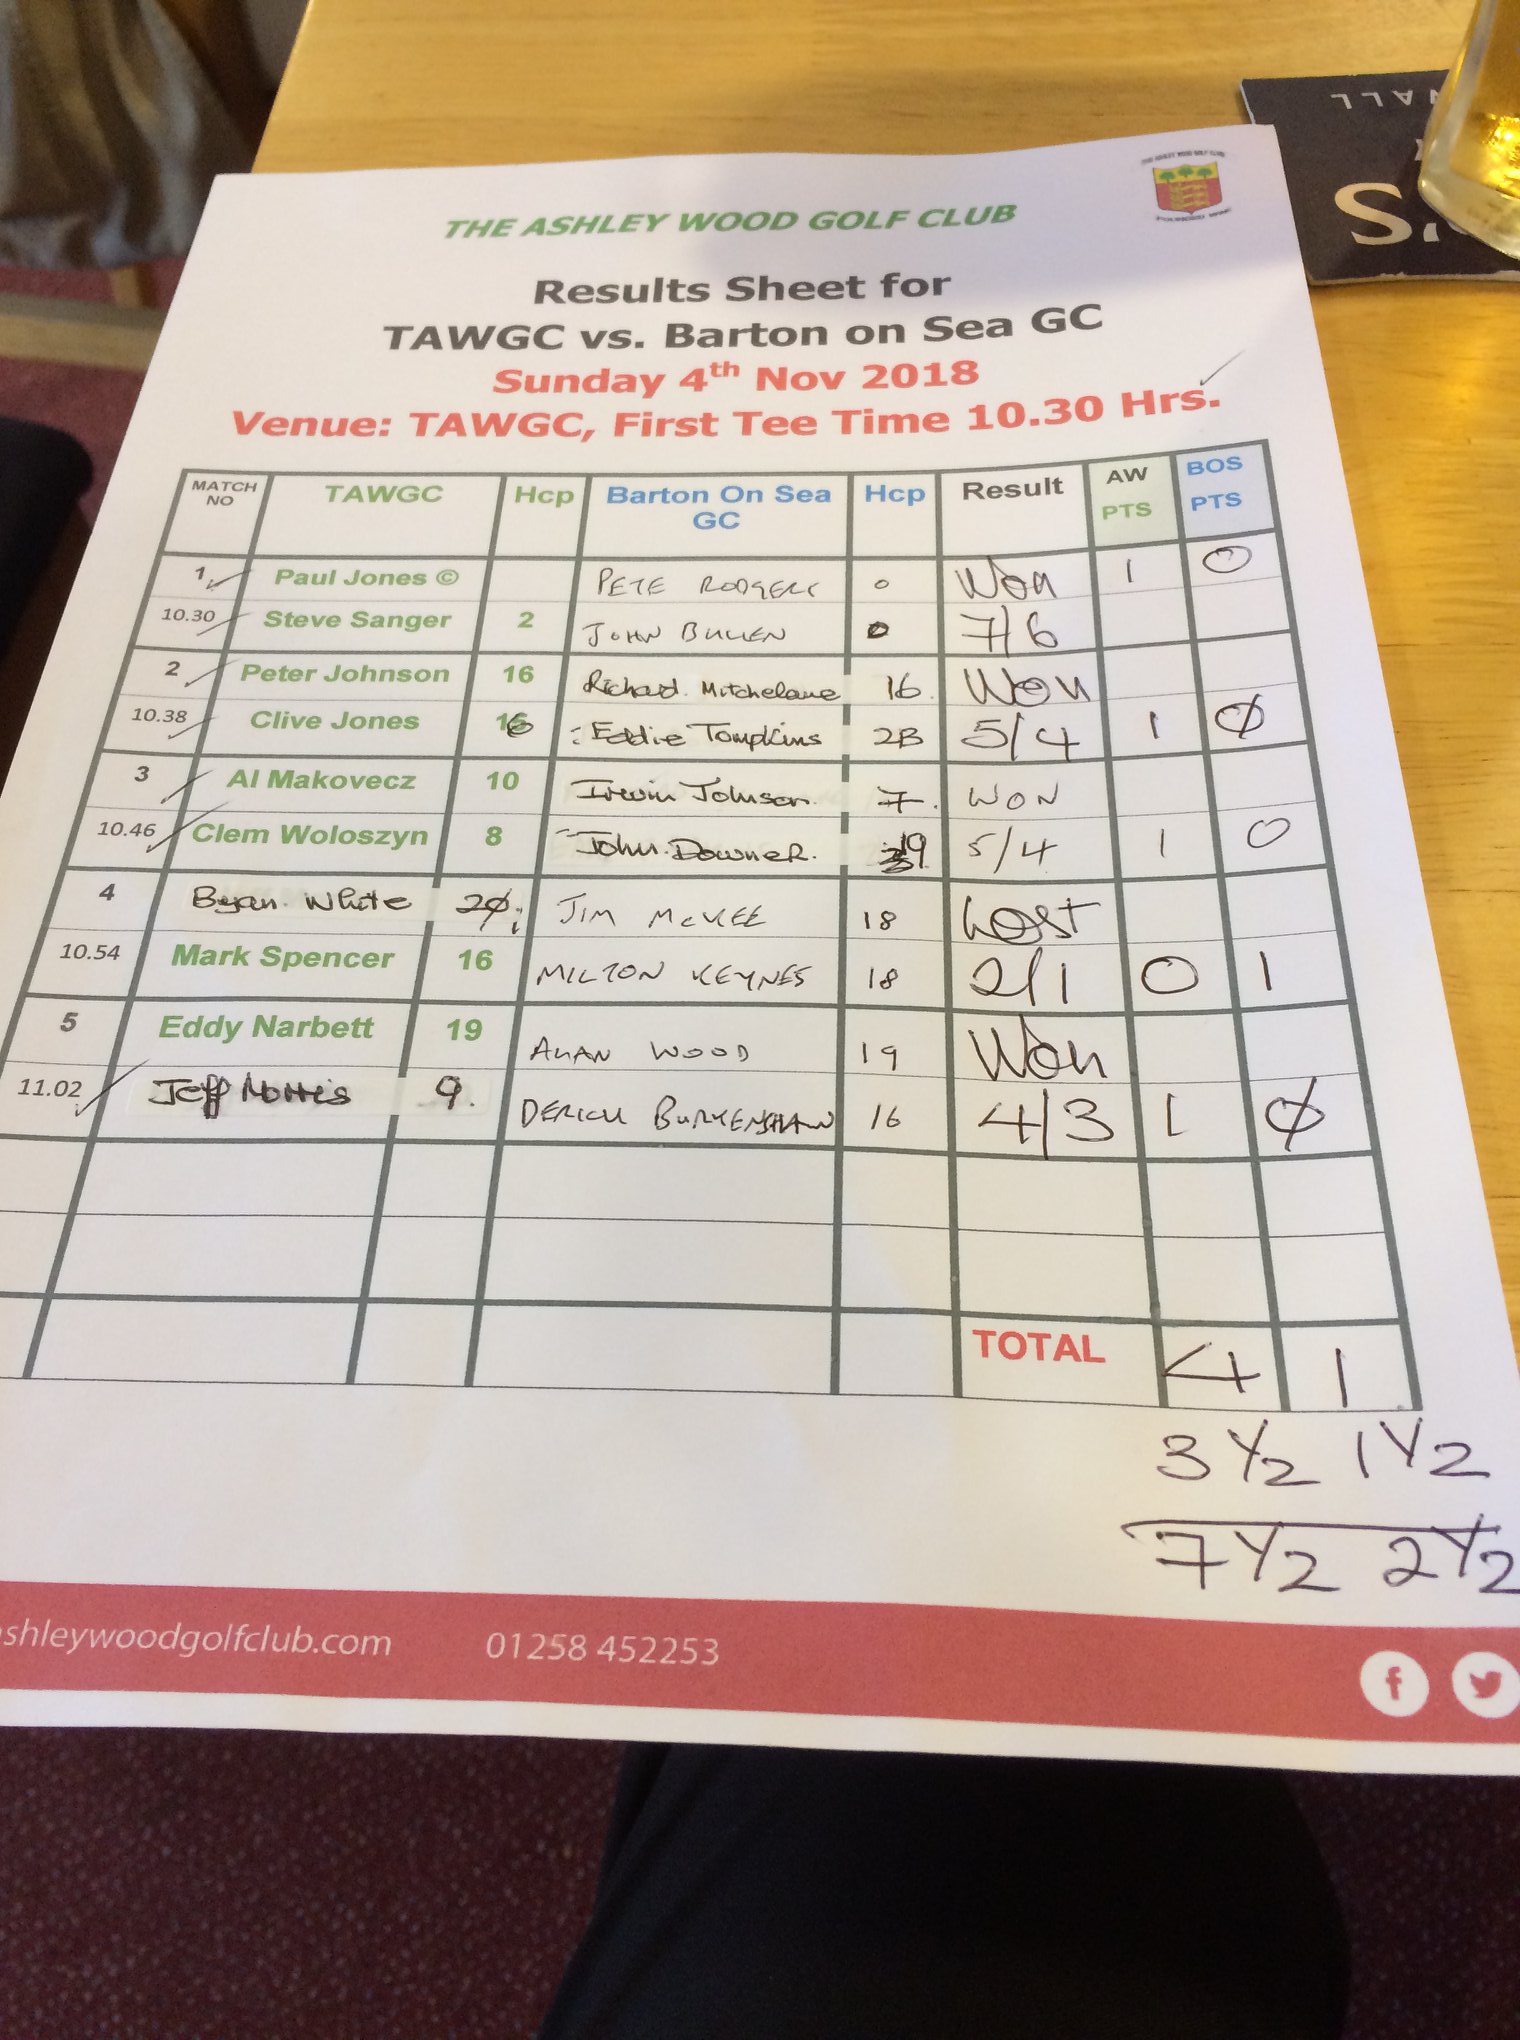 THE ASHLEY WOOD GOLF CLUB
Results Sheet for
TAWGC vs. Barton on Sea GC
Sunday 4th Nov 2018
Venue: TAWGC, First Tee Time 10.30 Hrs.
MATCH NO TAWGC Hcp Barton On Sea GC Hcp Result AW PTS BOS PTS
1 Paul Jones © PETE RODGERS 0 Won 1 0
10.30 Steve Sanger 2 JOHN BULLEN 0 7/6
2 Peter Johnson 16 Richard Mitchelane 16 Won
10.38 Clive Jones 16 Eddie Tompkins 23 5/4 1 0
3 Al Makovecz 10 Irwin Johnson 7 WON
10.46 Clem Woloszyn 8 John Downer 19 5/4 1 0
4 Bryan White 20 JIM MCKEE 18 Lost
10.54 Mark Spencer 16 MILTON KEYNES 18 2/1 0 1
5 Eddy Narbett 19 ALAN WOOD 19 Won
11.02 Jeff Norris 9 DERICK BURKENSHAW 16 4/3 1 0
TOTAL 4 1
3 1/2 1 1/2
7 1/2 2 1/2
shleywoodgolfclub.com 01258 452253